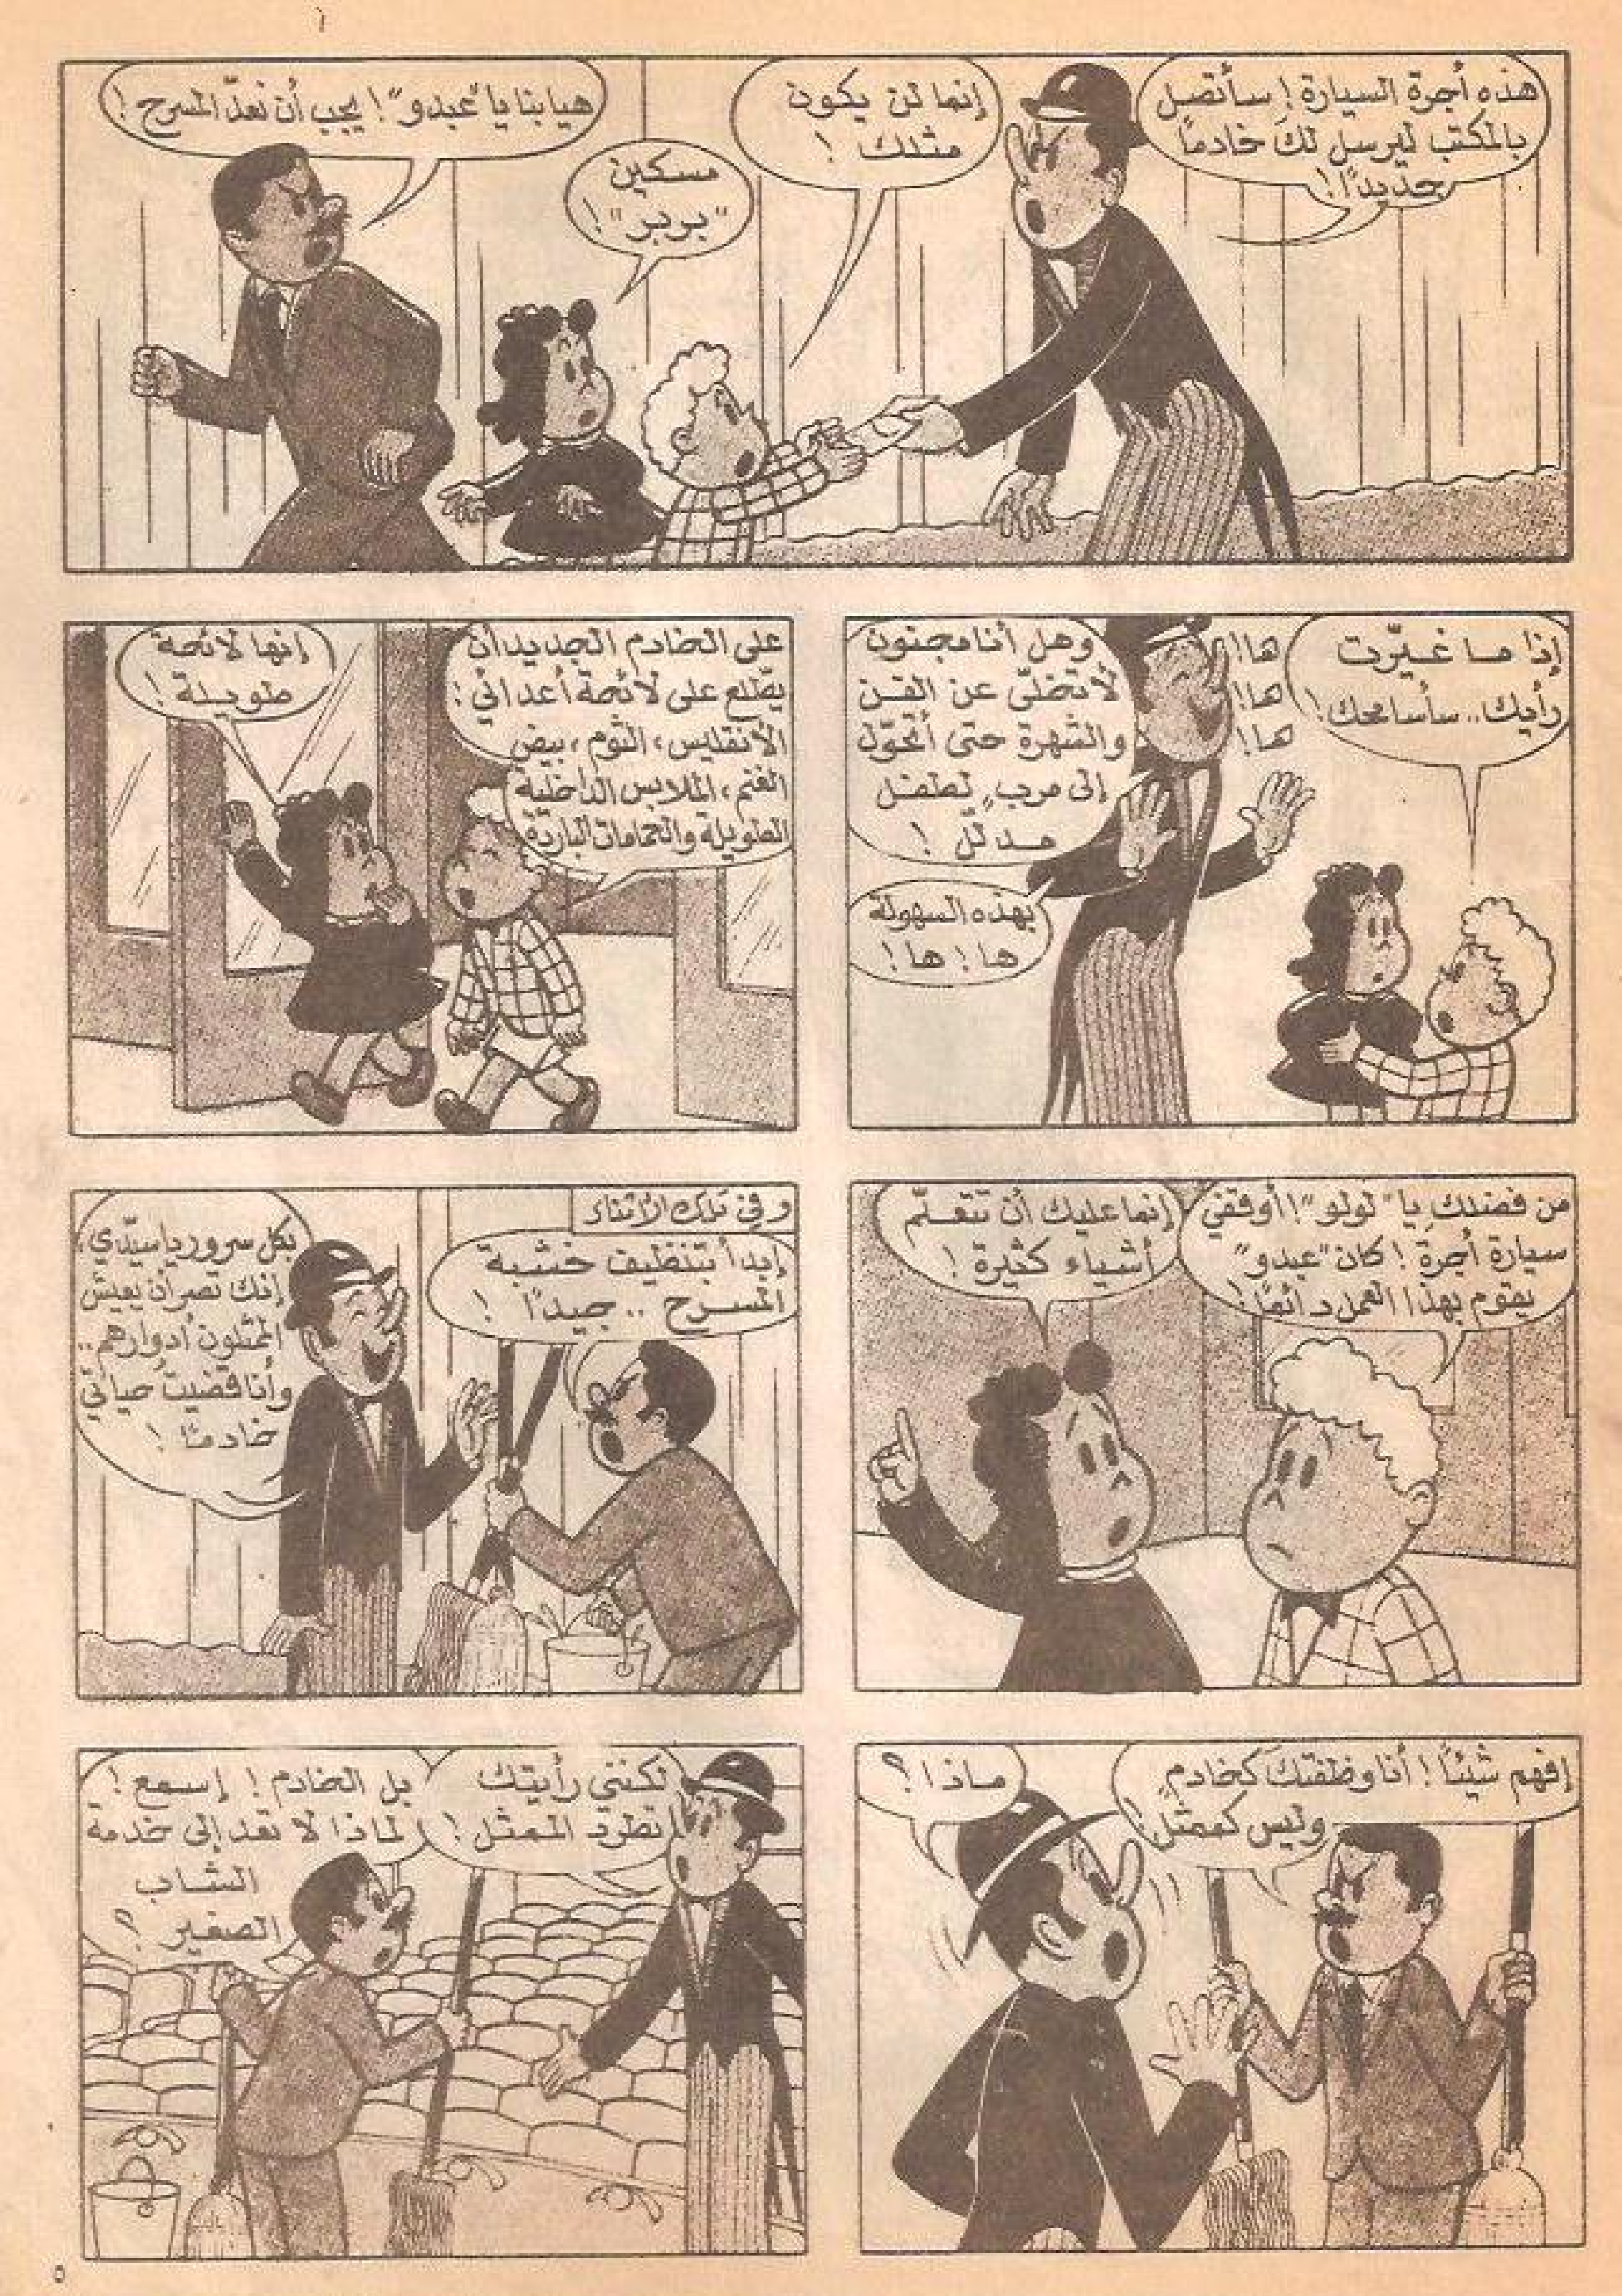 هذه أجرة السيارة! سأتصل
بالمكتب ليرسل لكَ خادمًا
جديدًا!
إنما لن يكون
مثلك!
مسكين
"بربر"!
هيا بنا يا "عبدو"! يجب أن نعدّ المسرح!
إذا ما غيّرت
رأيك.. سأسامحك!
ها!
ها!
ها!
وهل أنا مجنون
لأتخلّى عن الفن
والشهرة حتى أتحوّل
إلى مربٍ لطفل
مدلّل!
بهذه السهولة
ها! ها!
على الخادم الجديد أن
يطّلع على لائحة أعدائي:
الأنقليس، الثوم، بيض
الغنم، الملابس الداخلية
الطويلة والحمامات الباردة
إنها لائحة
طويلة!
من فضلك يا "لولو"! أوقفي
سيارة أجرة! كان "عبدو"
يقوم بهذا العمل دائمًا!
إنما عليك أن تتعلّم
أشياء كثيرة!
وفي تلك الأثناء
إبدأ بتنظيف خشبة
المسرح .. جيدًا!
بكل سرور يا سيّدي،
إنك تصر أن يعيش
الممثلون أدوارهم..
وأنا قضيت حياتي
خادمًا!
إفهم شيئًا! أنا وظفتكَ كخادمٍ
وليس كممثل!
ماذا؟
لكنني رأيتك
تطرد الممثل!
بل الخادم! إسمع!
لماذا لا تعد إلى خدمة
الشاب
الصغير؟
٥